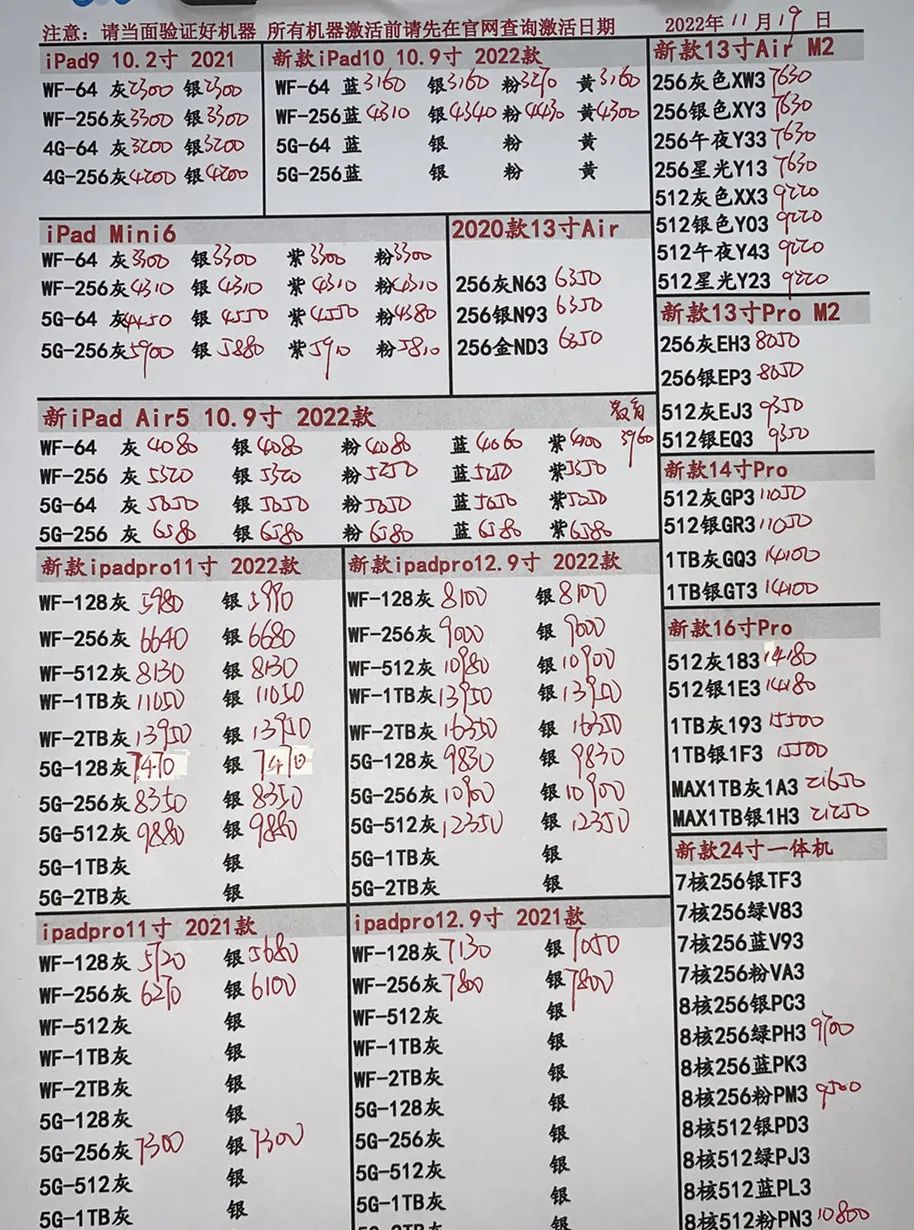 注意：请当面验证好机器 所有机器激活前请先在官网查询激活日期
2022年11月19日
iPad9 10.2寸 2021
WF-64 灰2300 银2300
WF-256灰3300 银3300
4G-64 灰3200 银3200
4G-256灰4200 银4200
新款iPad10 10.9寸 2022款
WF-64 蓝3160 银3160 粉3270 黄3160
WF-256蓝4310 银4340 粉4430 黄4300
5G-64 蓝 银 粉 黄
5G-256蓝 银 粉 黄
iPad Mini6
WF-64 灰3300 银3300 紫3300 粉3300
WF-256灰4310 银4310 紫4310 粉4310
5G-64 灰4450 银4550 紫4550 粉4380
5G-256灰5900 银5880 紫5910 粉5810
2020款13寸Air
256灰N63 6350
256银N93 6350
256金ND3 6650
新iPad Air5 10.9寸 2022款 教育
3960
WF-64 灰4080 银4080 粉4080 蓝4060 紫4900
WF-256 灰5320 银5320 粉5250 蓝5250 紫5350
5G-64 灰5650 银5650 粉5650 蓝5650 紫5250
5G-256 灰6580 银6580 粉6580 蓝6580 紫6580
新款ipadpro11寸 2022款
WF-128灰5980 银5990
WF-256灰6640 银6680
WF-512灰8130 银8130
WF-1TB灰11050 银11050
WF-2TB灰13950 银13950
5G-128灰7470 银7470
5G-256灰8350 银8350
5G-512灰9880 银9880
5G-1TB灰 银
5G-2TB灰 银
新款ipadpro12.9寸 2022款
WF-128灰8100 银8100
WF-256灰9000 银9000
WF-512灰10980 银10900
WF-1TB灰13950 银13950
WF-2TB灰16350 银16350
5G-128灰9830 银9830
5G-256灰10900 银10900
5G-512灰12350 银12350
5G-1TB灰 银
5G-2TB灰 银
ipadpro11寸 2021款
WF-128灰5720 银5680
WF-256灰6270 银6100
WF-512灰 银
WF-1TB灰 银
WF-2TB灰 银
5G-128灰 银
5G-256灰7300 银7300
5G-512灰 银
5G-1TB灰 银
ipadpro12.9寸 2021款
WF-128灰7130 银7050
WF-256灰7800 银7800
WF-512灰 银
WF-1TB灰 银
WF-2TB灰 银
5G-128灰 银
5G-256灰 银
5G-512灰 银
5G-1TB灰 银
新款13寸Air M2
256灰色XW3 7630
256银色XY3 7630
256午夜Y33 7630
256星光Y13 7630
512灰色XX3 9220
512银色Y03 9220
512午夜Y43 9220
512星光Y23 9220
新款13寸Pro M2
256灰EH3 8050
256银EP3 8050
512灰EJ3 9350
512银EQ3 9350
新款14寸Pro
512灰GP3 11050
512银GR3 11050
1TB灰GQ3 14100
1TB银GT3 14100
新款16寸Pro
512灰183 14180
512银1E3 14180
1TB灰193 15500
1TB银1F3 15500
MAX1TB灰1A3 21650
MAX1TB银1H3 21250
新款24寸一体机
7核256银TF3
7核256绿V83
7核256蓝V93
7核256粉VA3
8核256银PC3
8核256绿PH3 9700
8核256蓝PK3
8核256粉PM3 9500
8核512银PD3
8核512绿PJ3
8核512蓝PL3
8核512粉PN3 10800